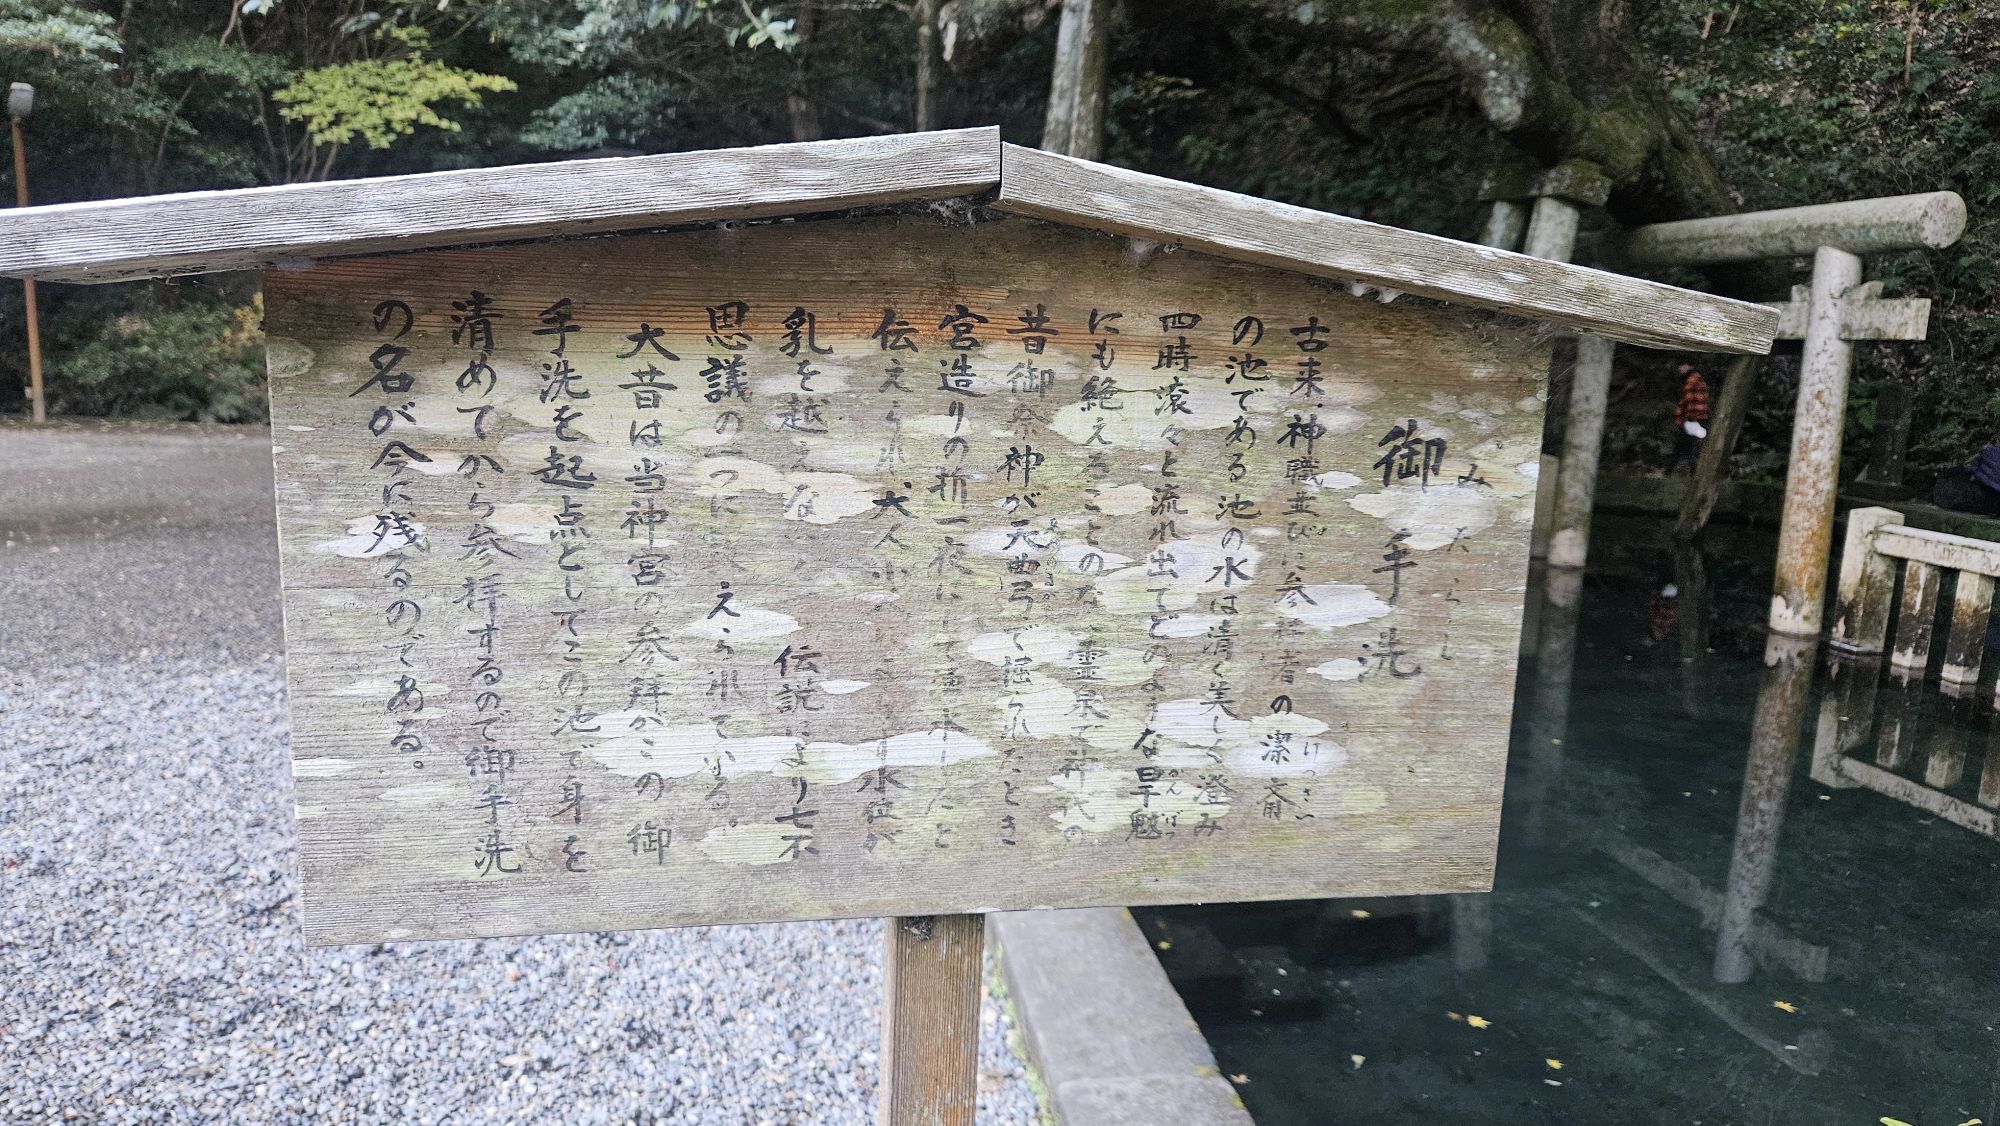 御手洗
みたらし
古来、神職並びに参拝者の潔斎
けっさい
の池である池の水は清く美しく澄み
四時滾々と流れ出てどのような旱魃
かんばつ
にも絶えることのない霊泉で神代の
昔御祭神が天曲弓で掘られたとき
宮造りの折一夜にして湧水したと
伝えられ、大人小 水位が
乳を越えな 伝説により七不
思議の一つに えられている。
大昔は当神宮の参拝がこの御
手洗を起点としてこの池で身を
清めてから参拝するので御手洗
の名が今に残るのである。